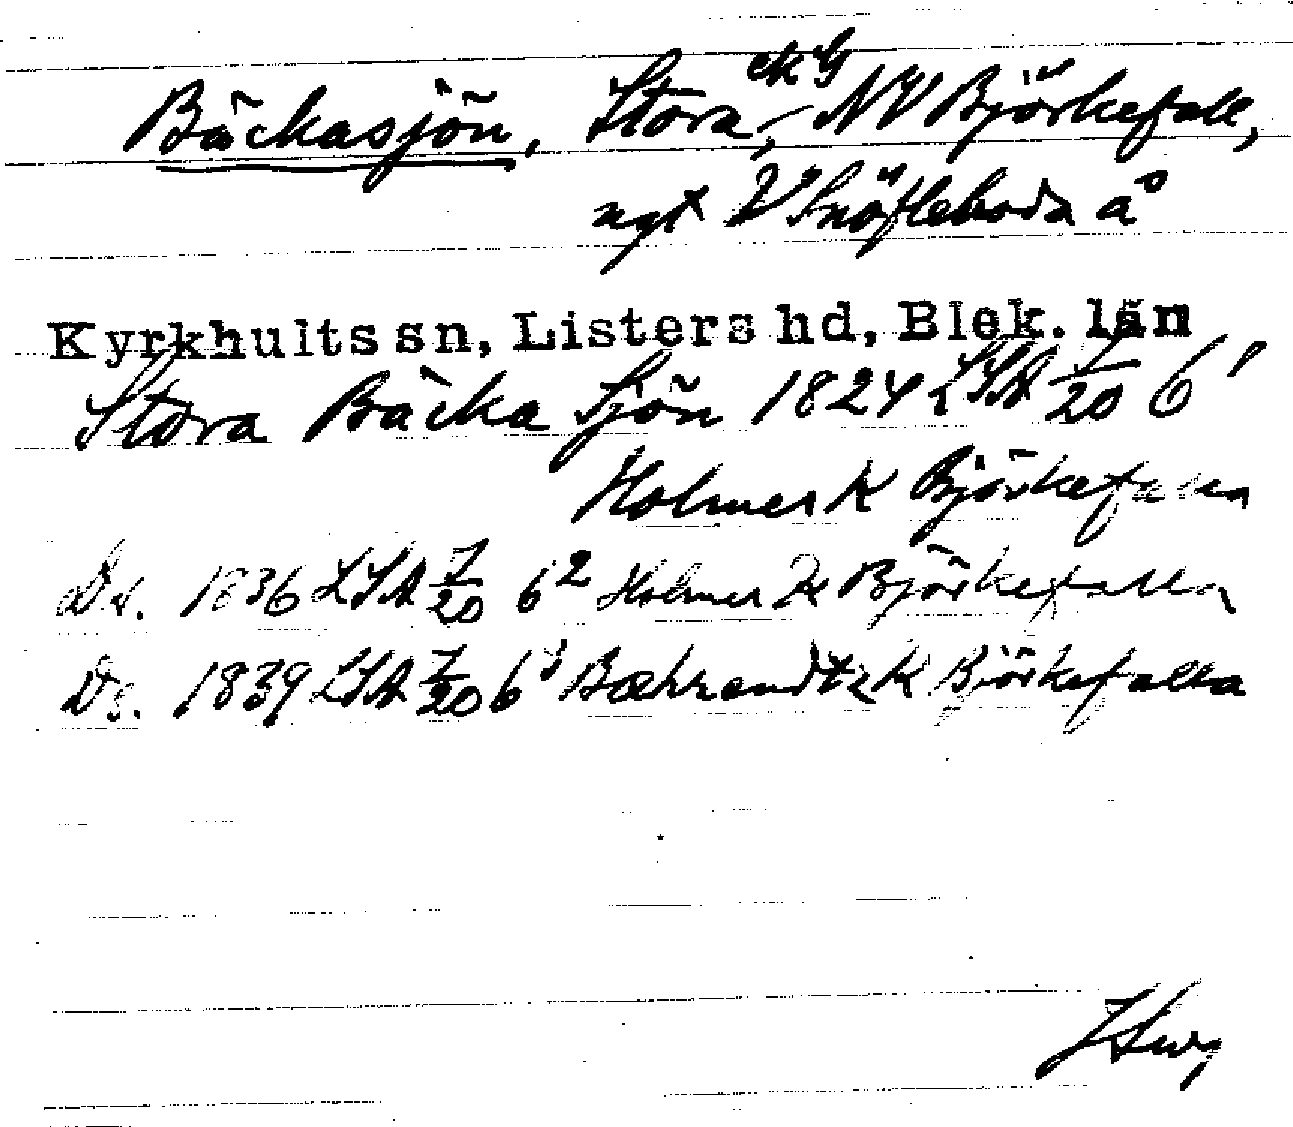 Bäckasjön, Stora, ekG NV Björkefall,
ngt V Snöfleboda å
Kyrkhults sn, Listers hd, Blek. län
Stora Bäcka Sjön 1824 LSA 7/20 6¹
Holmer K Björkefalla
Ds. 1836 LSA 7/20 6² Holmer K Björkefalla
Ds. 1839 LSA 7/20 6³ Bæhrendtz K Björkefalla